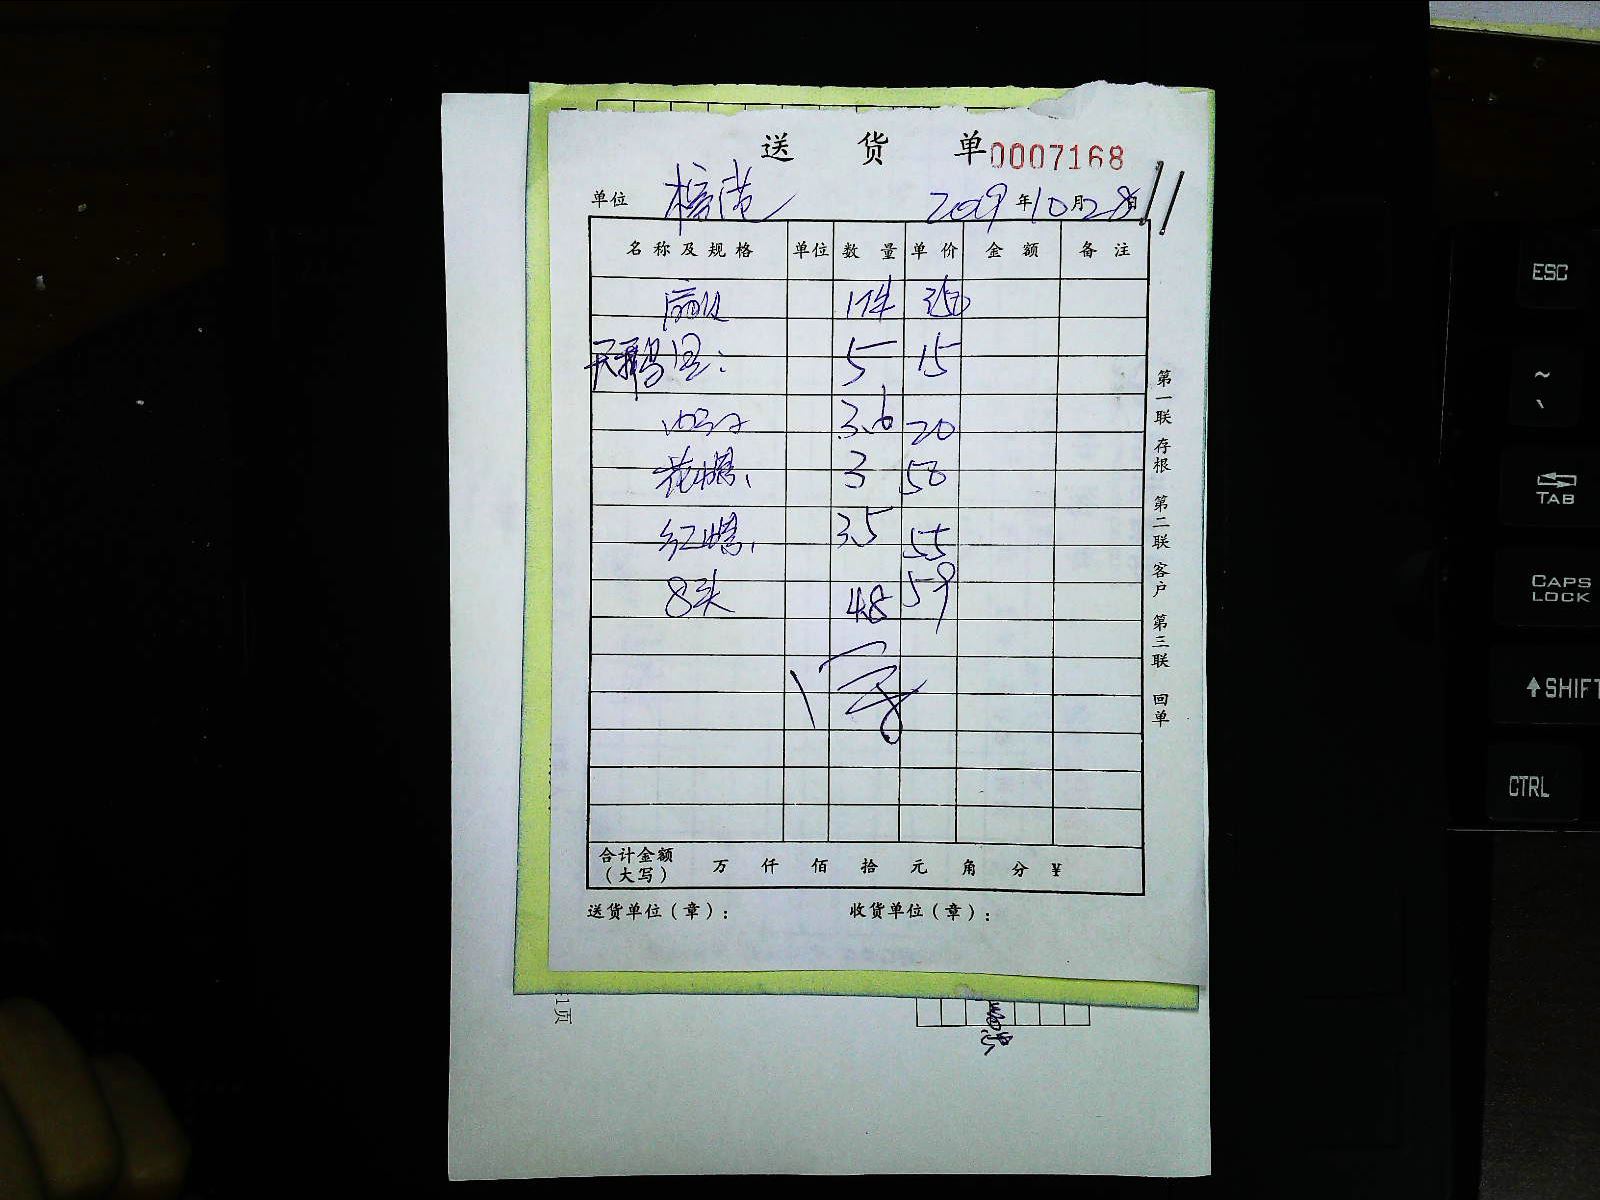 送 货 单 0007168
单位 2019年10月28日
名称及规格 单位 数量 单价 金额 备注
扇贝 1件 350
天鹅蛋: 5 15
3.6 20
花螺 3 58
红螺 3.5 55
8头 4.8 59
合计金额(大写) 万 仟 佰 拾 元 角 分 ¥
送货单位(章): 收货单位(章):
第一联 存根 第二联 客户 第三联 回单
1页
ESC
~
TAB
CAPS LOCK
SHIFT
CTRL